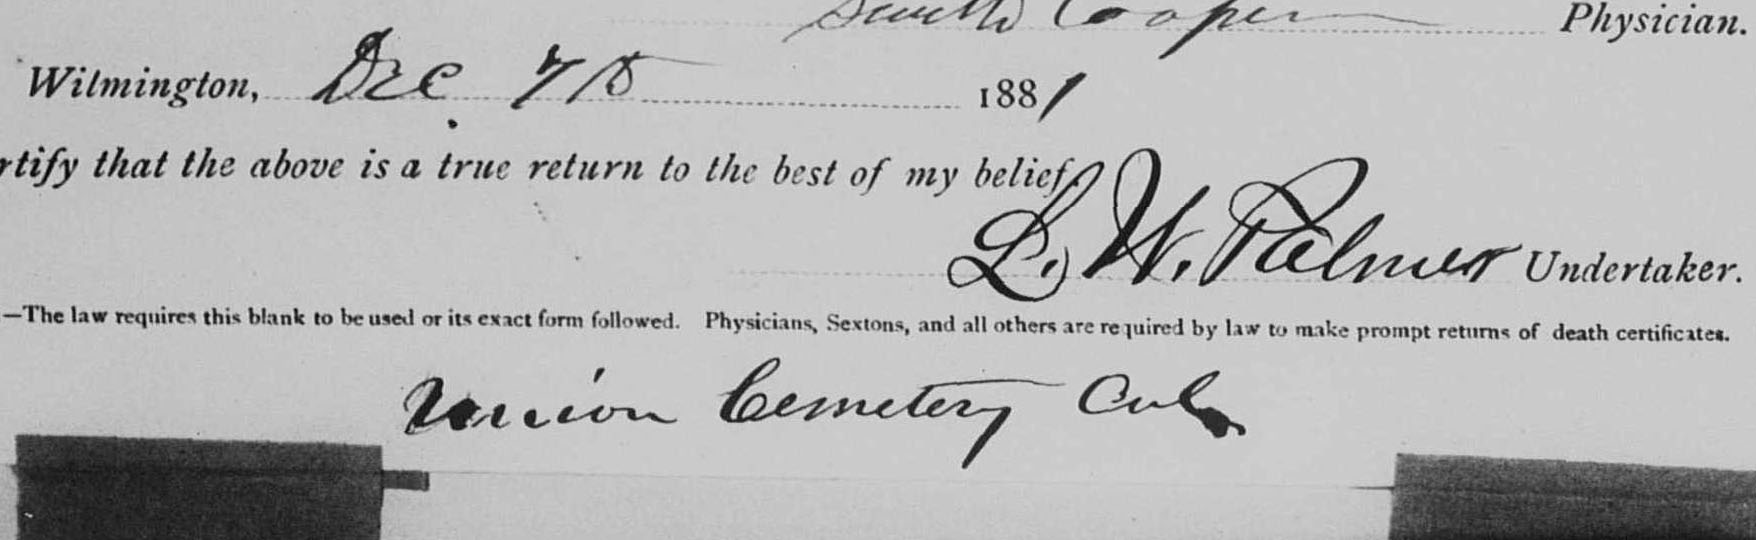 Cooper Physician.
Wilmington, Dec 7th 1881
rtify that the above is a true return to the best of my belief.
L. W. Palmer Undertaker.
—The law requires this blank to be used or its exact form followed. Physicians, Sextons, and all others are required by law to make prompt returns of death certificates.
Union Cemetery